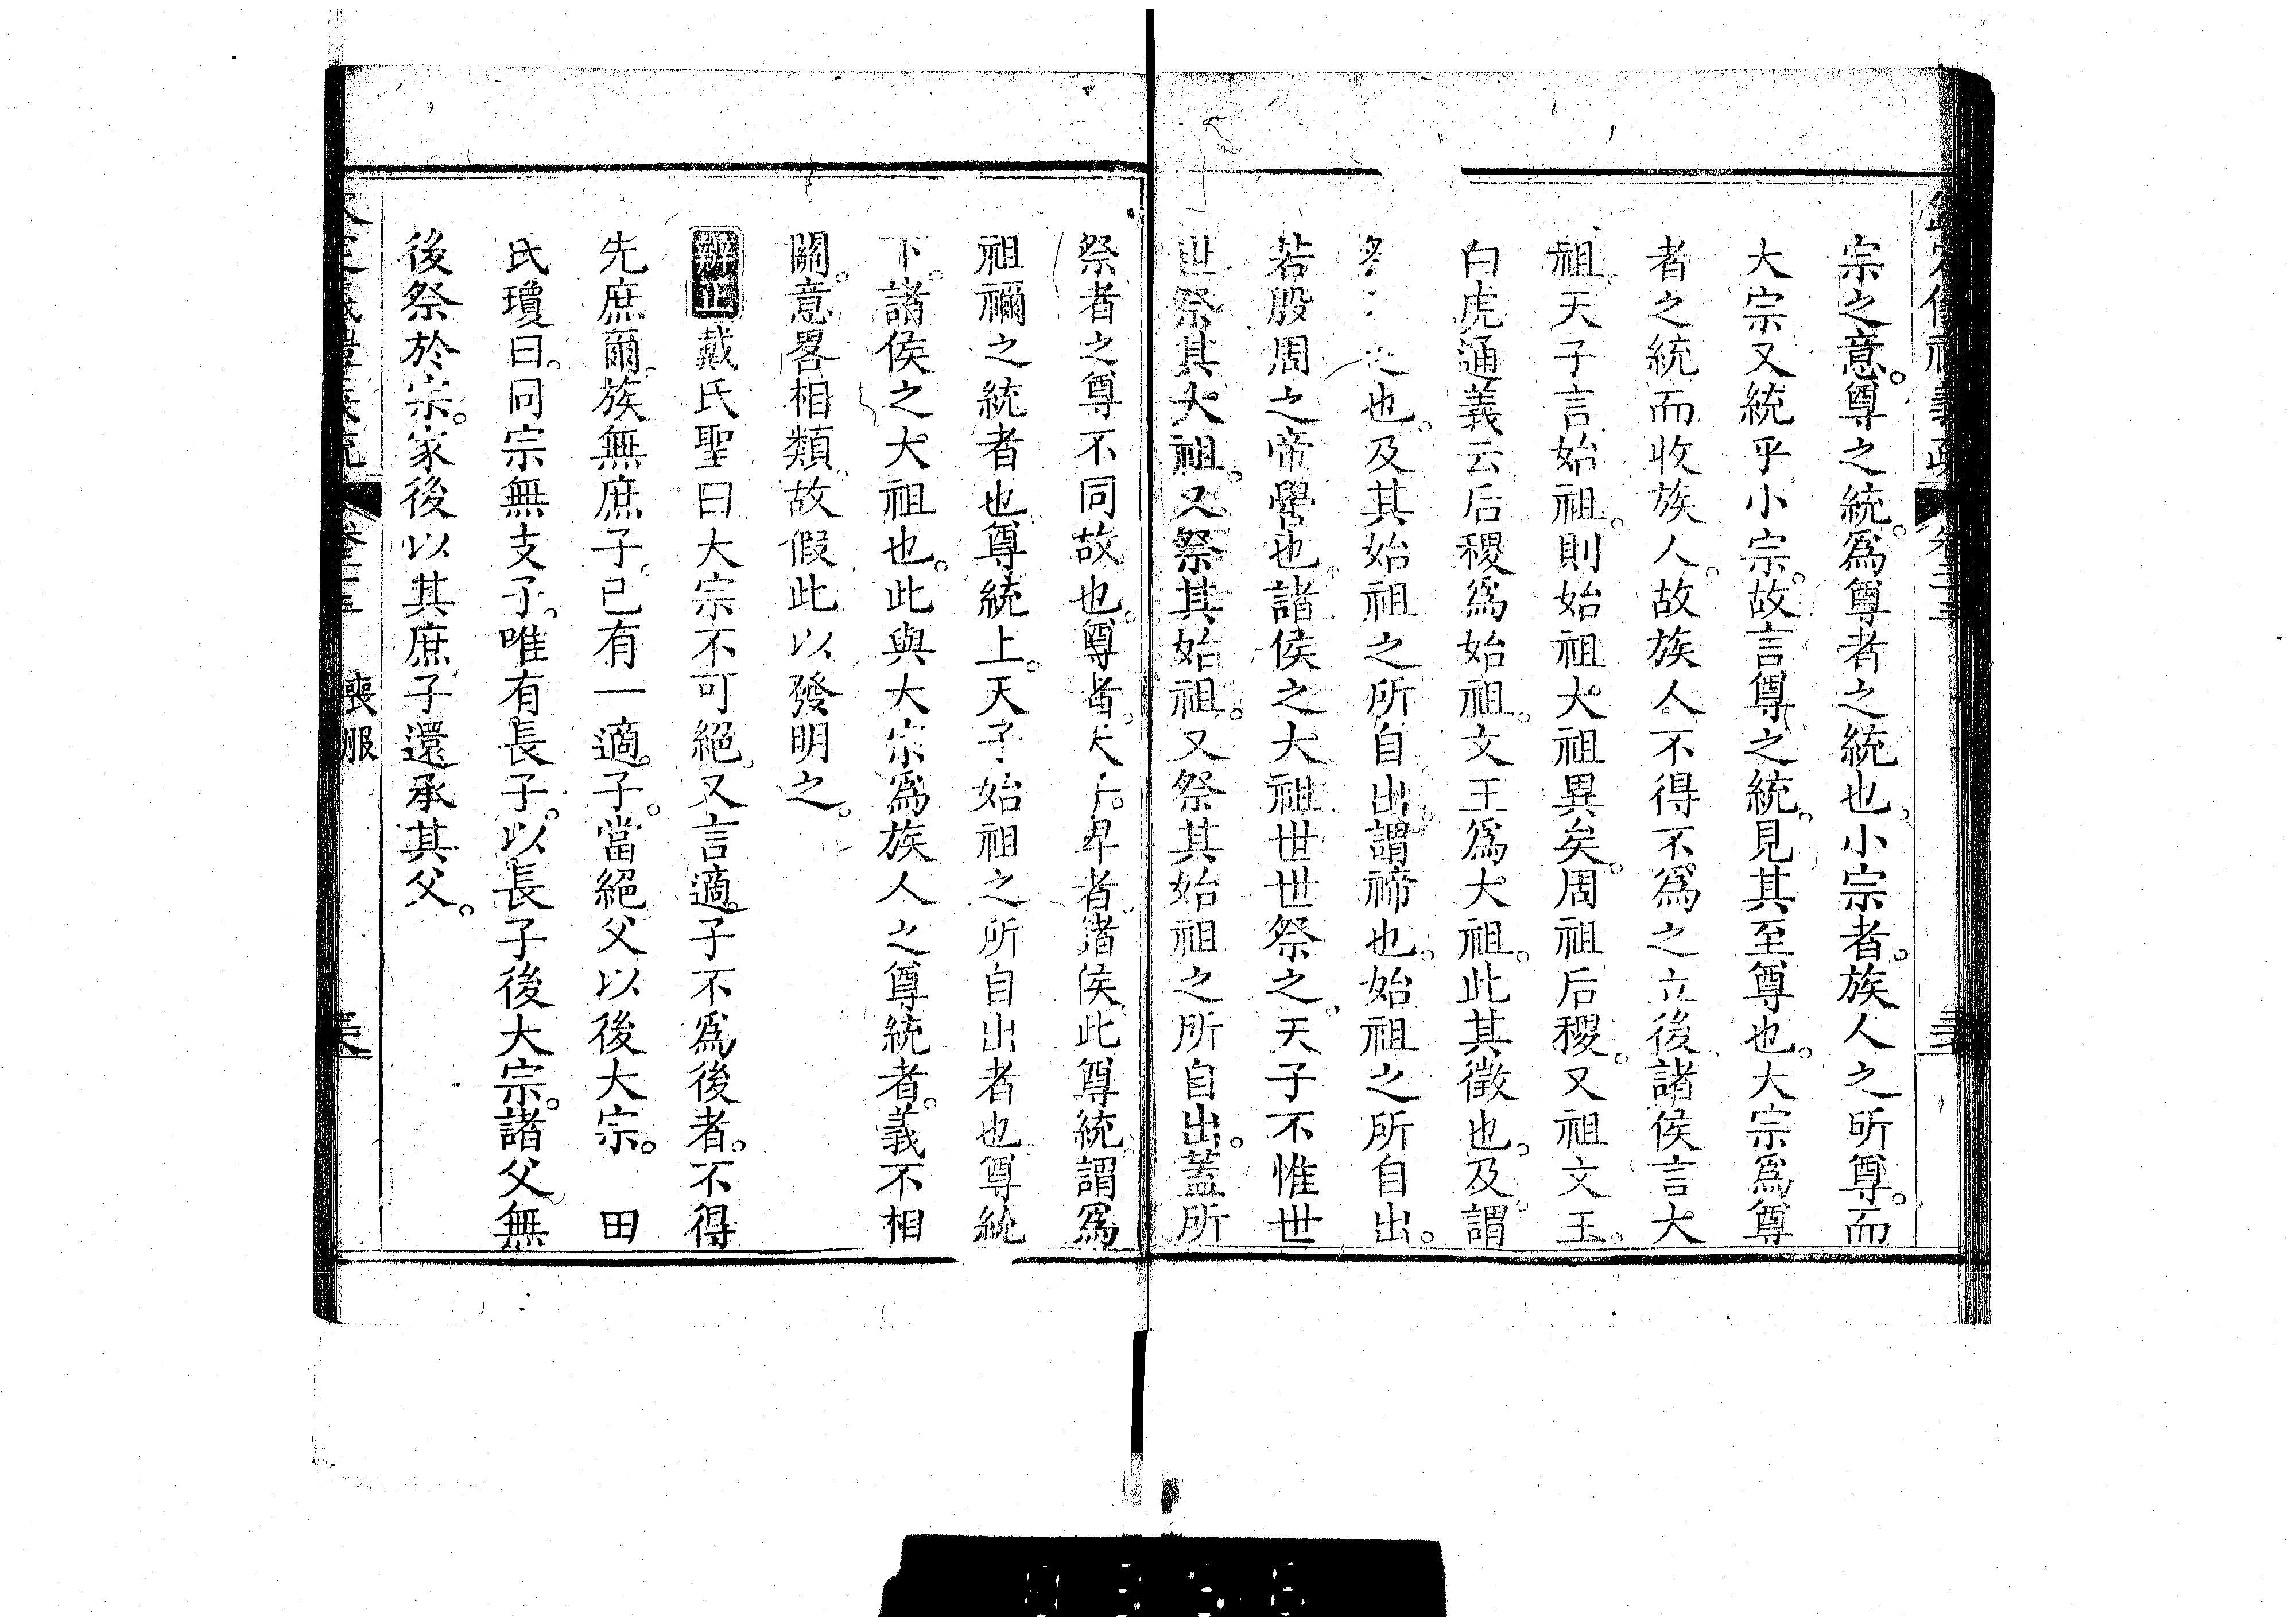 宗之意。尊之統。爲尊者之統也。小宗者。族人之所尊。而
大宗又統乎小宗。故言尊之統。見其至尊也。大宗爲尊
者之統而收族人。故族人不得不爲之立後諸侯言大
祖。天子言始祖。則始祖大祖異矣。周祖后稷。又祖文王。
白虎通義云后稷爲始祖。文王爲大祖。此其徵也。及謂
也。及其始祖之所自出。謂禘也。始祖之所自出。
若殷周之帝嚳也。諸侯之大祖世世祭之。天子不惟世
世祭其大祖。又祭其始祖。又祭其始祖之所自出。蓋所
祭者之尊不同故也。尊者。天子。卑者。諸侯。此尊統。謂爲
祖禰之統者也。尊統上。天子始祖之所自出者也尊統
下。諸侯之大祖也。此與大宗爲族人之尊統者。義不相
關。意畧相類。故假此以發明之。
辨正戴氏聖曰大宗不可絕。又言適子不爲後者。不得
先庶爾。族無庶子。已有一適子。當絕父以後大宗。 田
氏瓊曰。同宗無支子。唯有長子。以長子後大宗。諸父無
後祭於宗。家後以其庶子還承其父。
喪服